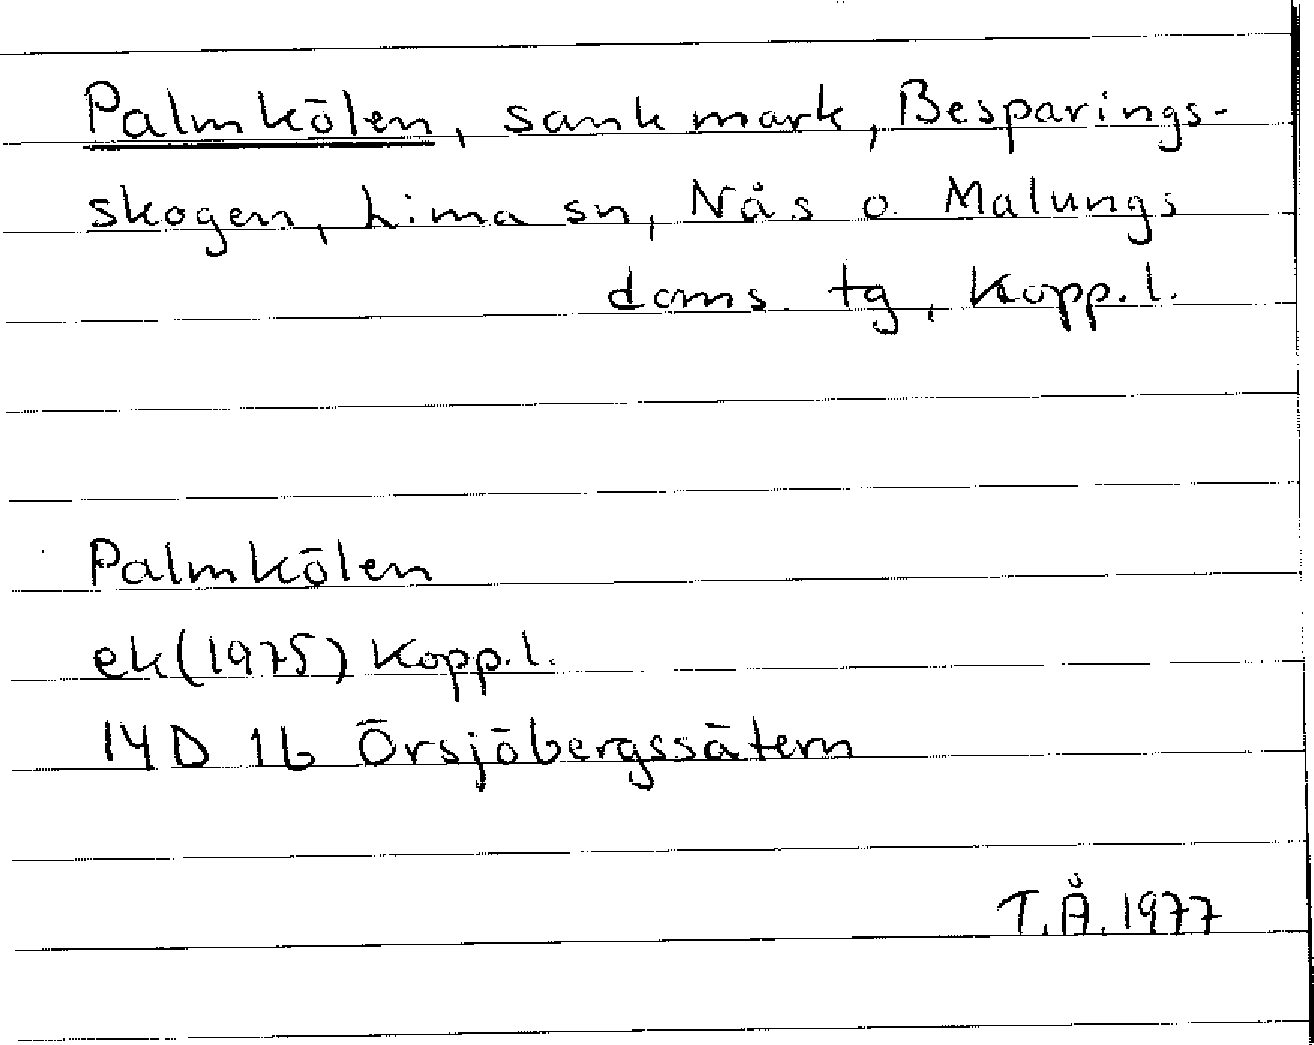 Palmkölen, sank mark, Besparings-
skogen, Lima sn, Nås o. Malungs
doms. tg, Kopp.l.
Palmkölen
ek(1975) Kopp.l.
14D 1b Örsjöbergssätern
T.Å. 1977